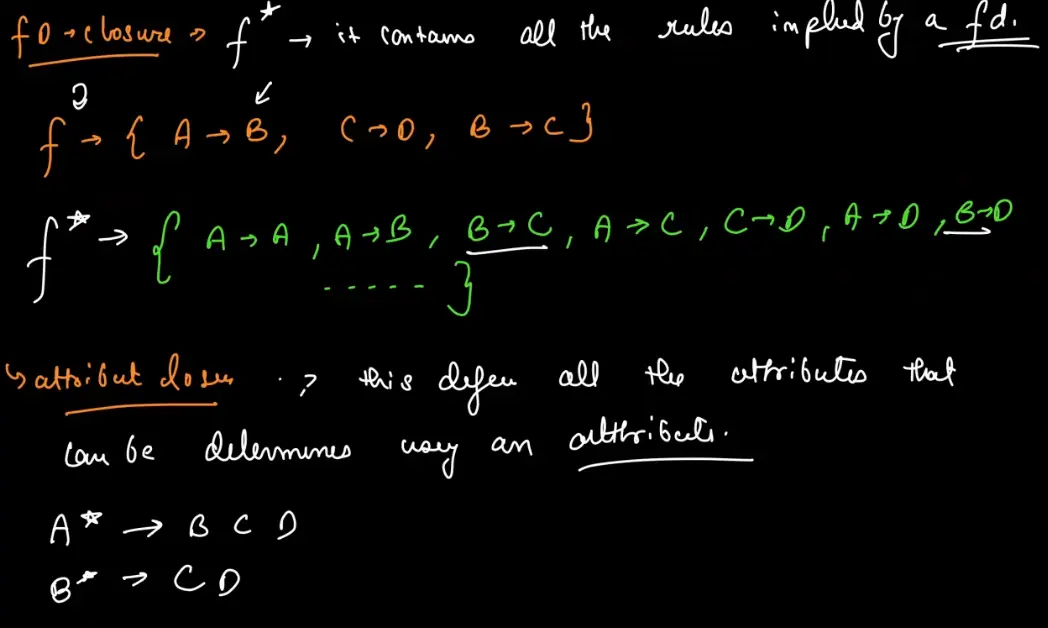 fD → closure → f* → it contains all the rules implied by a fd.
f → { A → B, C → D, B → C }
f* → { A → A , A → B , B → C , A → C , C → D , A → D , B → D
- - - - - }
↳ attribut closu . ? this defen all the attributes that
can be determines usey an attribute.
A* → B C D
B* → C D